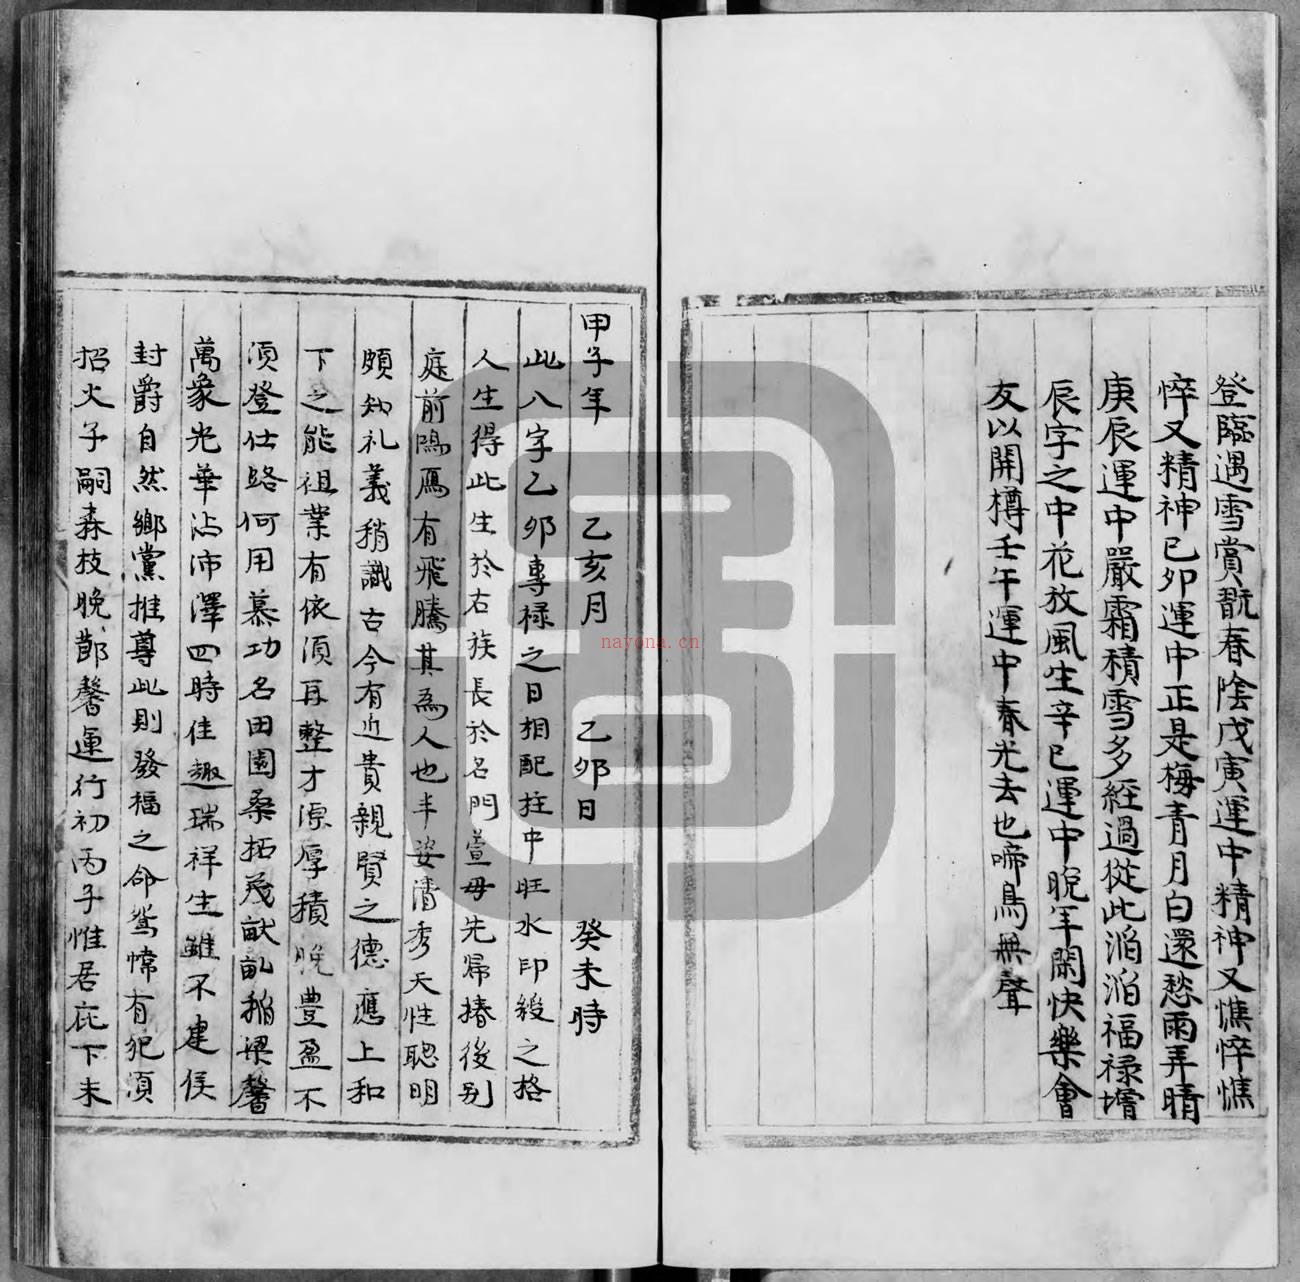 登臨遇雪賞翫春陰戊寅運中精神又憔悴憔
悴又精神已卯運中正是梅青月白還愁雨弄晴
庚辰運中嚴霜積雪多經過從此滔滔福祿增
辰字之中花放風生辛巳運中晚年閑快樂會
友以開樽壬午運中春光去也啼鳥無聲
甲子年 乙亥月 乙卯日 癸未時
此八字乙卯專祿之日相配柱中旺水印綬之格
人生得此生於右族長於名門萱母先歸椿後别
庭前鴻鴈有飛騰其為人也丰姿清秀天性聰明
頗知礼義稍識古今有近貴親賢之德應上和
下之能祖業有依須再整才源厚積晚豊盈不
須登仕路何用慕功名田園桑拓茂畎畆稻粱馨
萬象光華沾沛澤四時佳趣瑞祥生雖不建侯
封爵自然鄉黨推尊此則發福之命鴛幃有犯須
招火子嗣森枝晚節馨運行初丙子惟居庇下未
nayona.cn